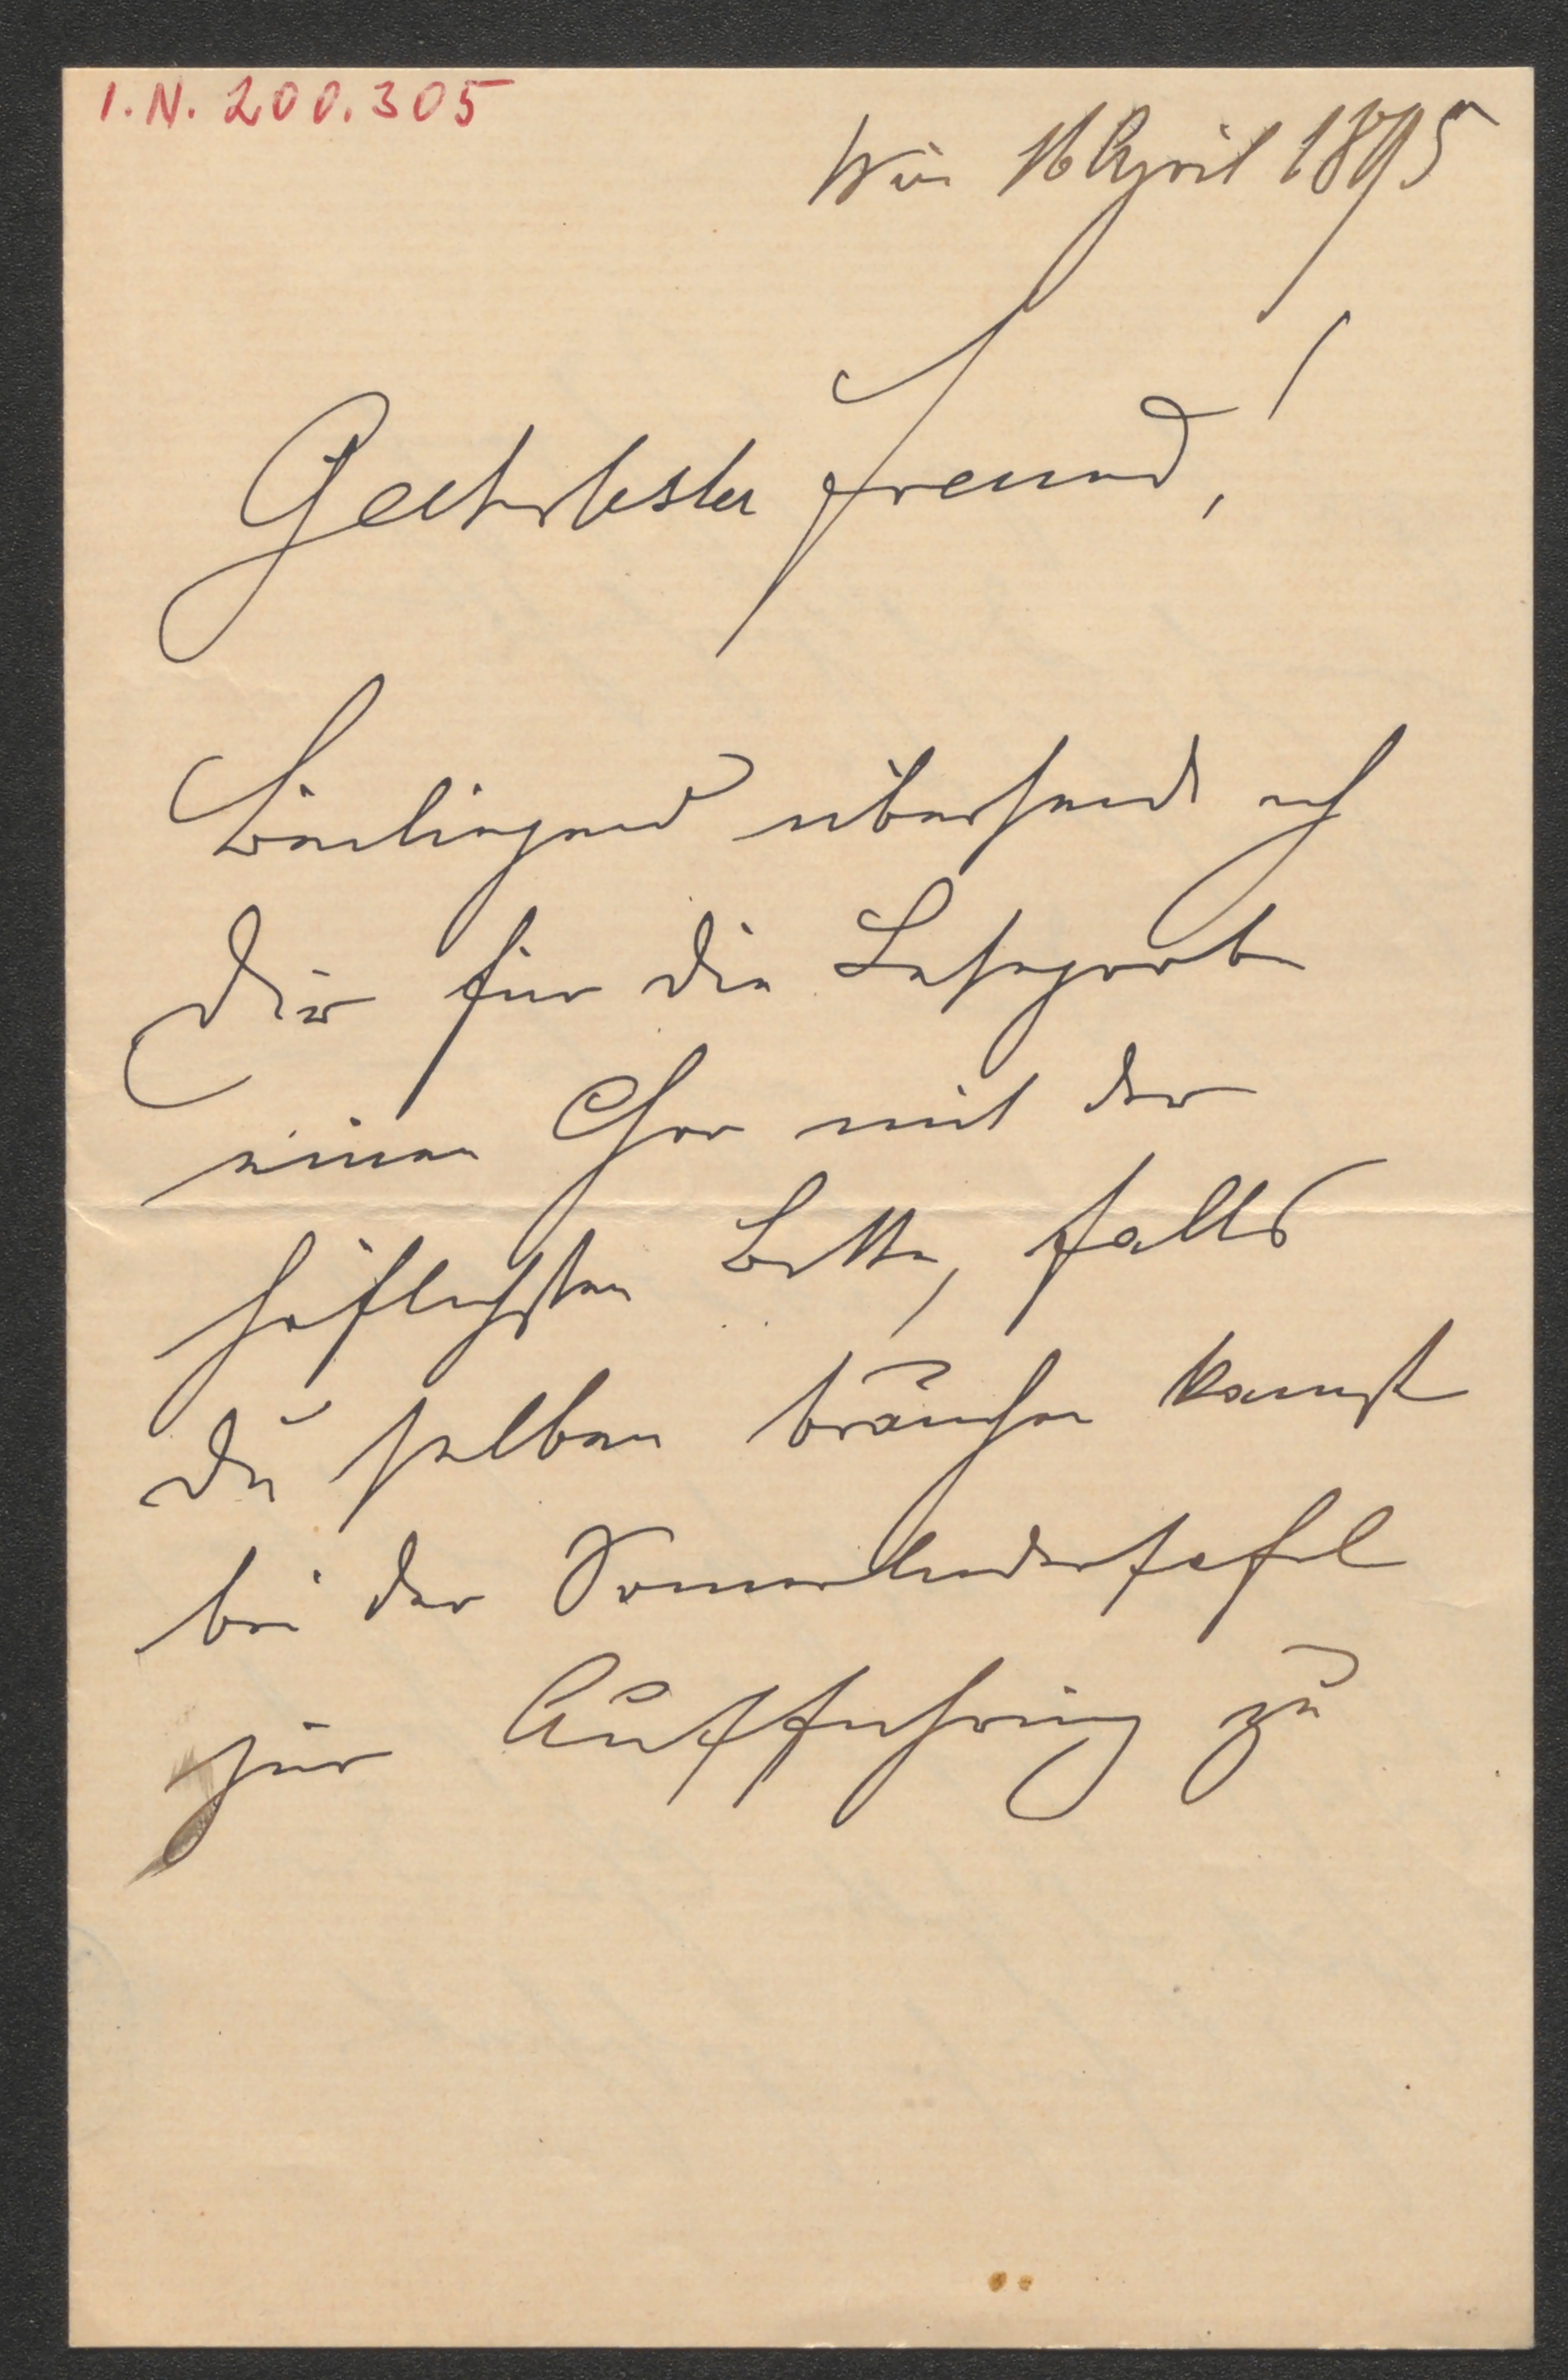 I.N. 200.305
Wien 16 April 1895
Geehrtester Freund!
Beiliegend übersende ich
Dir für die Leseprobe
einen Chor mit der
höflichsten Bitte, falls
Du selben brauchen kannst
bei der Sommerliedertafel
zur Aufführung zu